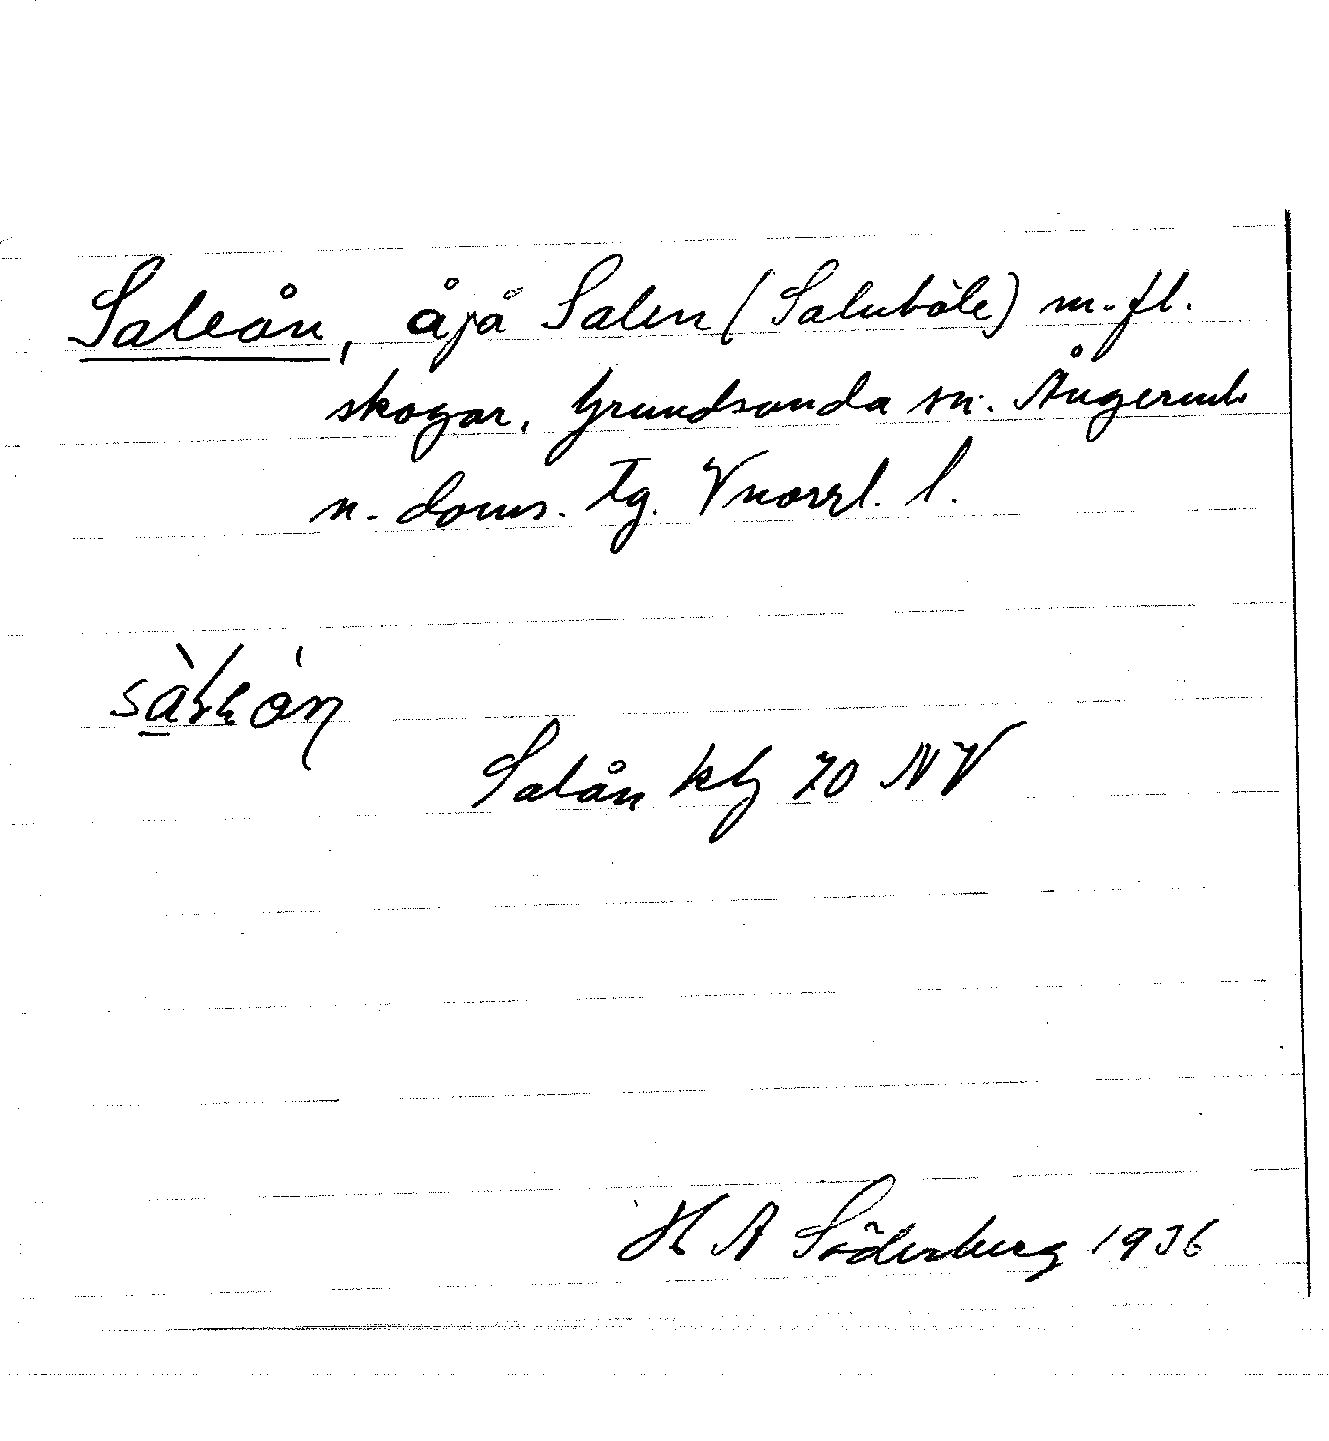 Saleån, å på Salen (Saluböle) m. fl.
skogar, Grundsunda sn. Ångerml.
n. doms. Tg. Vnorrl. l.
Salån kbl 70 NV
H A Söderberg 1936